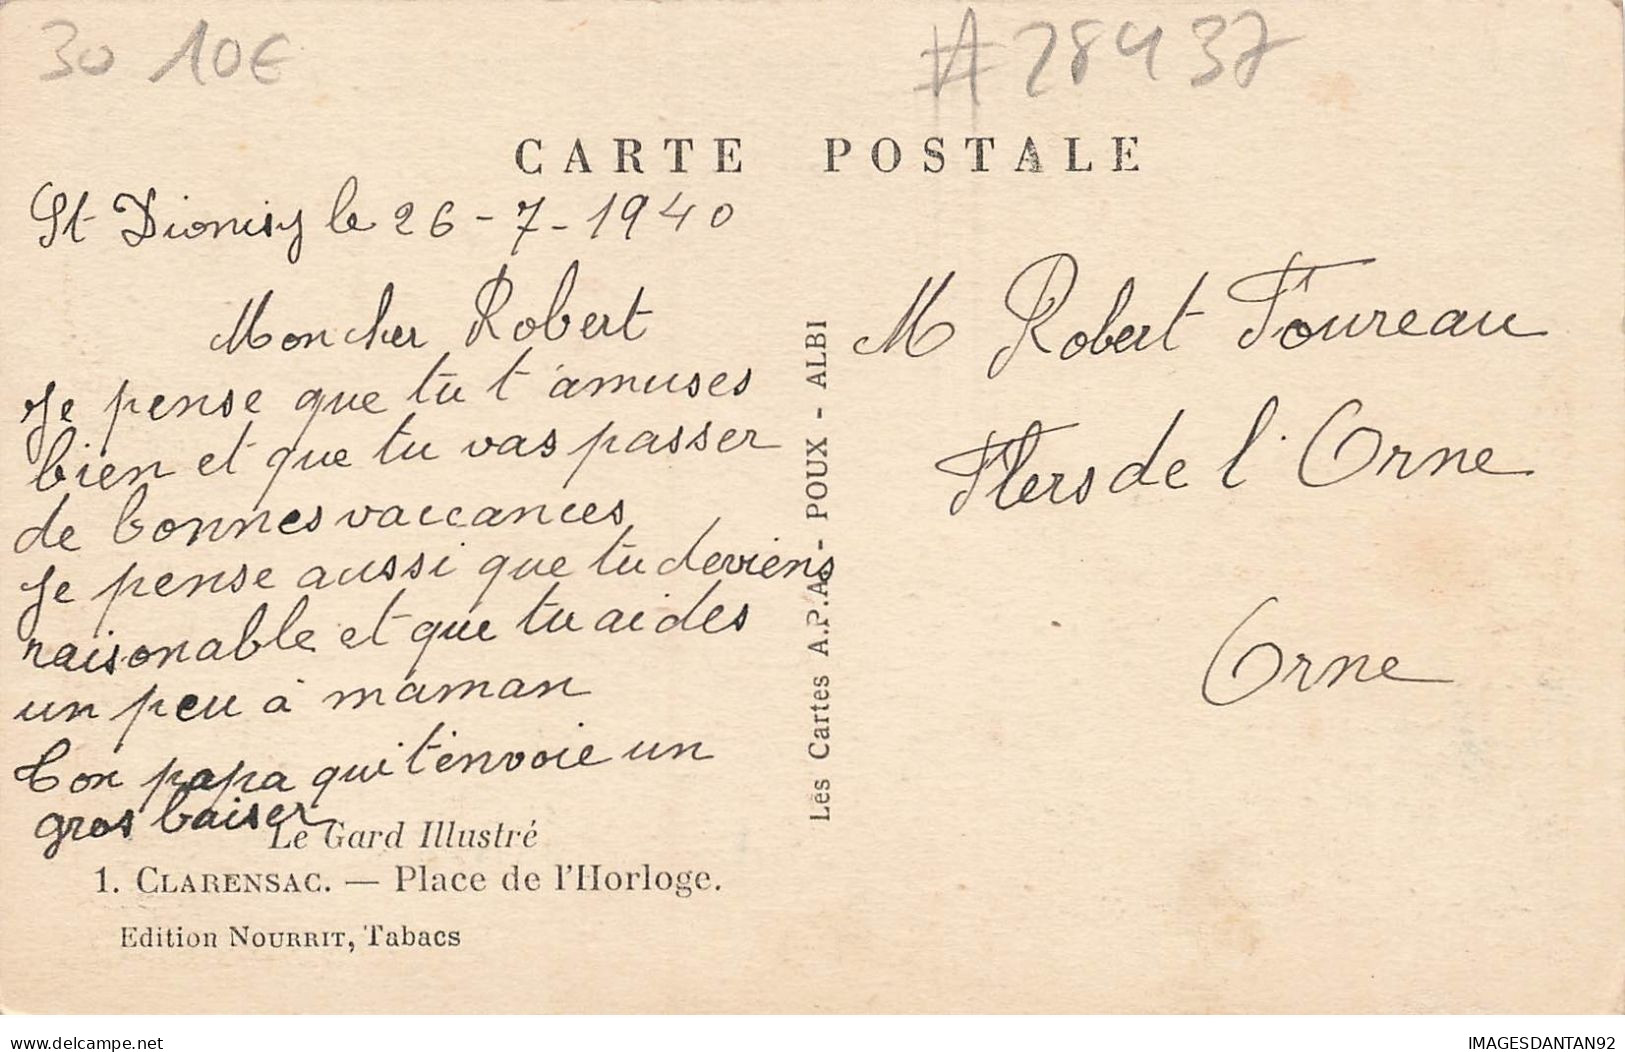 30 10€
#28437
CARTE POSTALE
St Dionisy le 26-7-1940
Mon cher Robert
Je pense que tu t'amuses
bien et que tu vas passer
de bonnes vaccances
Je pense aussi que tu deviens
raisonable et que tu aides
un peu à maman
Ton papa qui t'envoie un
gros baiser
Le Gard Illustré
1. CLARENSAC. — Place de l'Horloge.
Edition NOURRIT, Tabacs
Les Cartes A.P.A. - POUX - ALBI
M Robert Foureau
Flers de l'Orne
Orne
www.delcampe.net
IMAGESDANTAN92